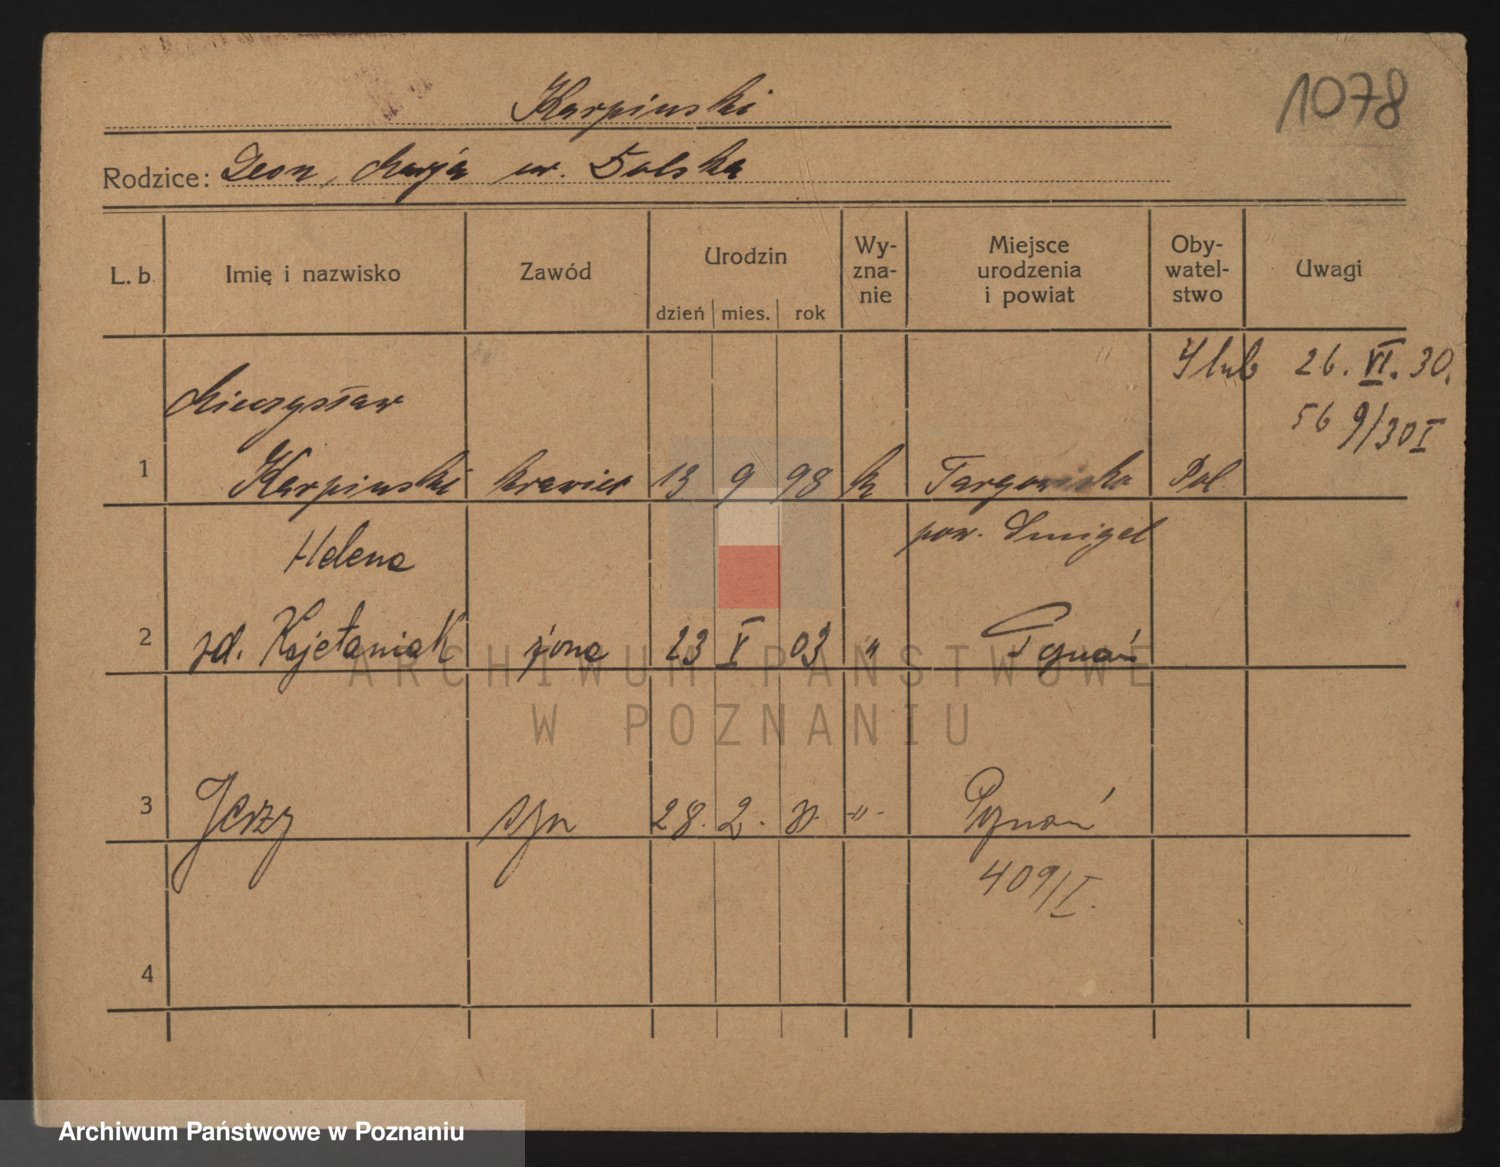 1078
Karpinski
Rodzice: Leon, Marja ur. Dolska
L. b. Imię i nazwisko Zawód Urodzin dzień mies. rok Wy-zna-nie Miejsce urodzenia i powiat Oby-watel-stwo Uwagi
Ślub 26. VI. 30.
56 9/30 I
Mieczysław
1 Karpinski krawiec 13 9 98 k Targowisko Pol
pow. Smigel
Helena
2 zd. Kajetaniak żona 23 V 03 " Poznań
3 Jerzy syn 28. 2. -"- Poznań
409/I.
4
ARCHIWUM PAŃSTWOWE
W POZNANIU
Archiwum Państwowe w Poznaniu